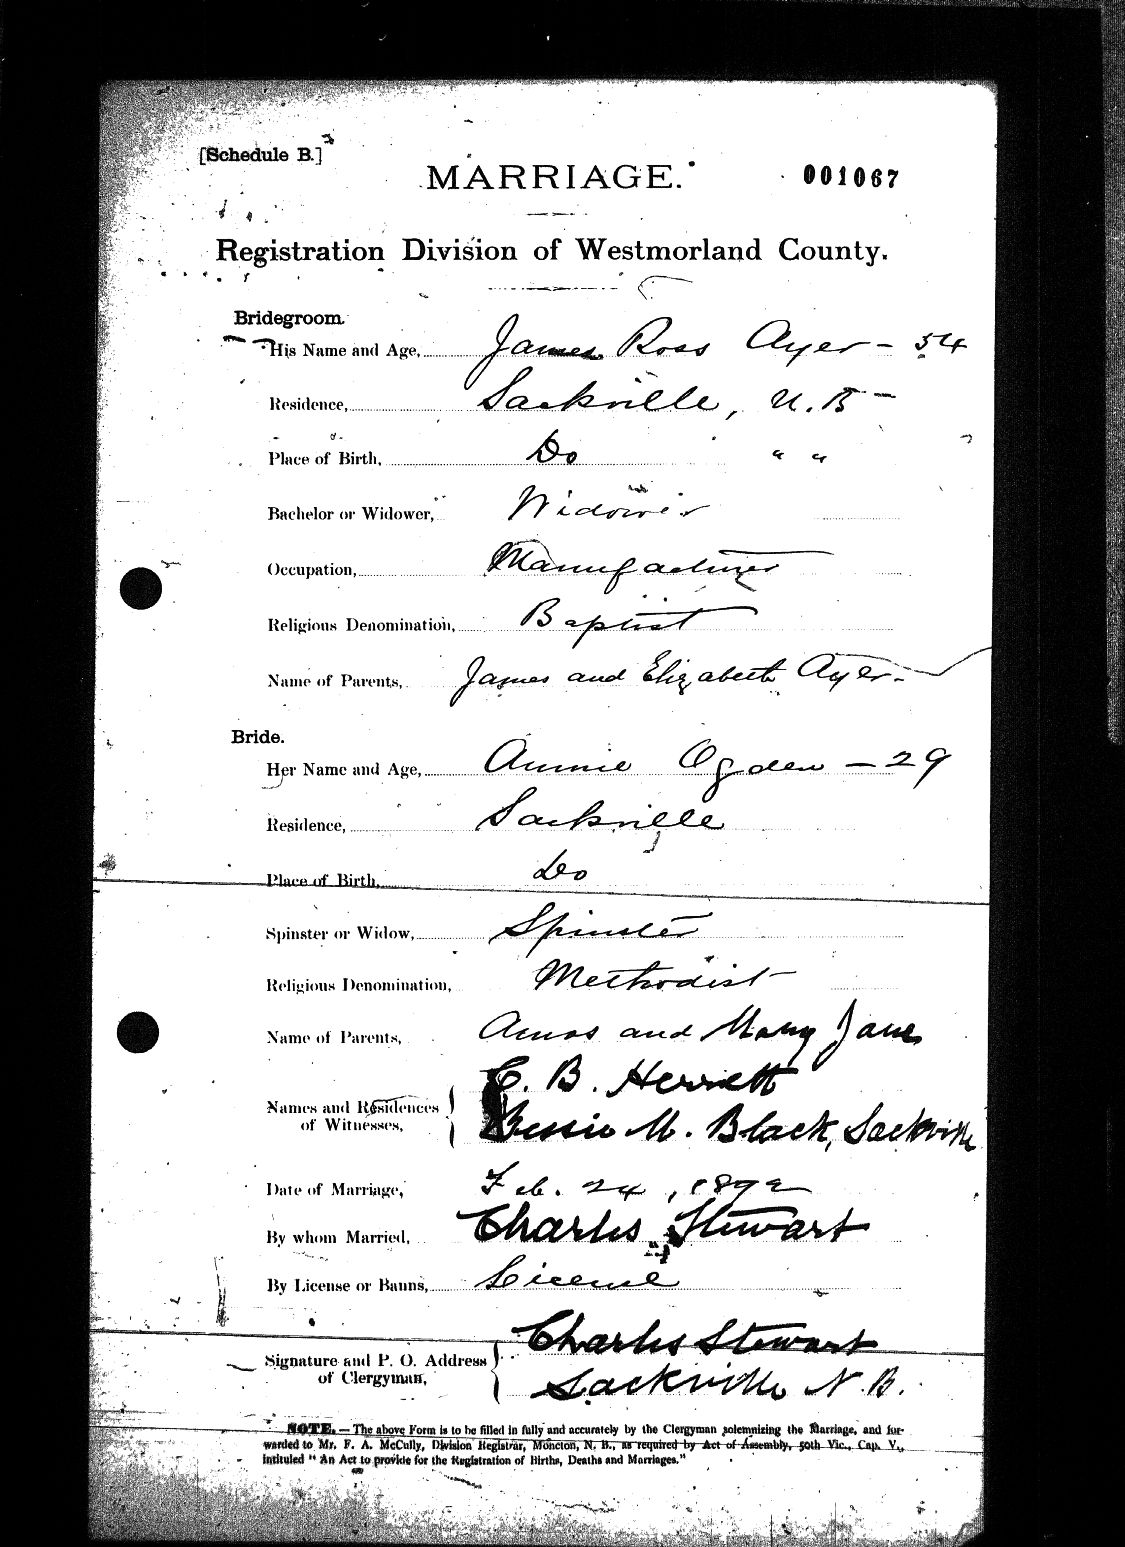 [Schedule B.]
MARRIAGE.
001067
Registration Division of Westmorland County.
Bridegroom.
His Name and Age, James Ross Ayer - 54
Residence, Sackville, N.B -
Place of Birth, Do " "
Bachelor or Widower, Widower
Occupation, Manufacturer
Religious Denomination, Baptist
Name of Parents, James and Elizabeth Ayer -
Bride.
Her Name and Age, Annie Ogden - 29
Residence, Sackville
Place of Birth, Do
Spinster or Widow, Spinster
Religious Denomination, Methodist
Name of Parents, Amos and Mary Jane
Names and Residences of Witnesses, C. B. Herrett
Bessie M. Black, Sackville
Date of Marriage, Feb. 24, 1892
By whom Married, Charles Stewart
By License or Banns, License
Signature and P. O. Address of Clergyman, Charles Stewart
Sackville N.B.
NOTE.—The above Form is to be filled in fully and accurately by the Clergyman solemnizing the Marriage, and for-
warded to Mr. F. A. McCully, Division Registrar, Moncton, N. B., as required by Act of Assembly, 50th Vic., Cap. V.,
intituled "An Act to provide for the Registration of Births, Deaths and Marriages."